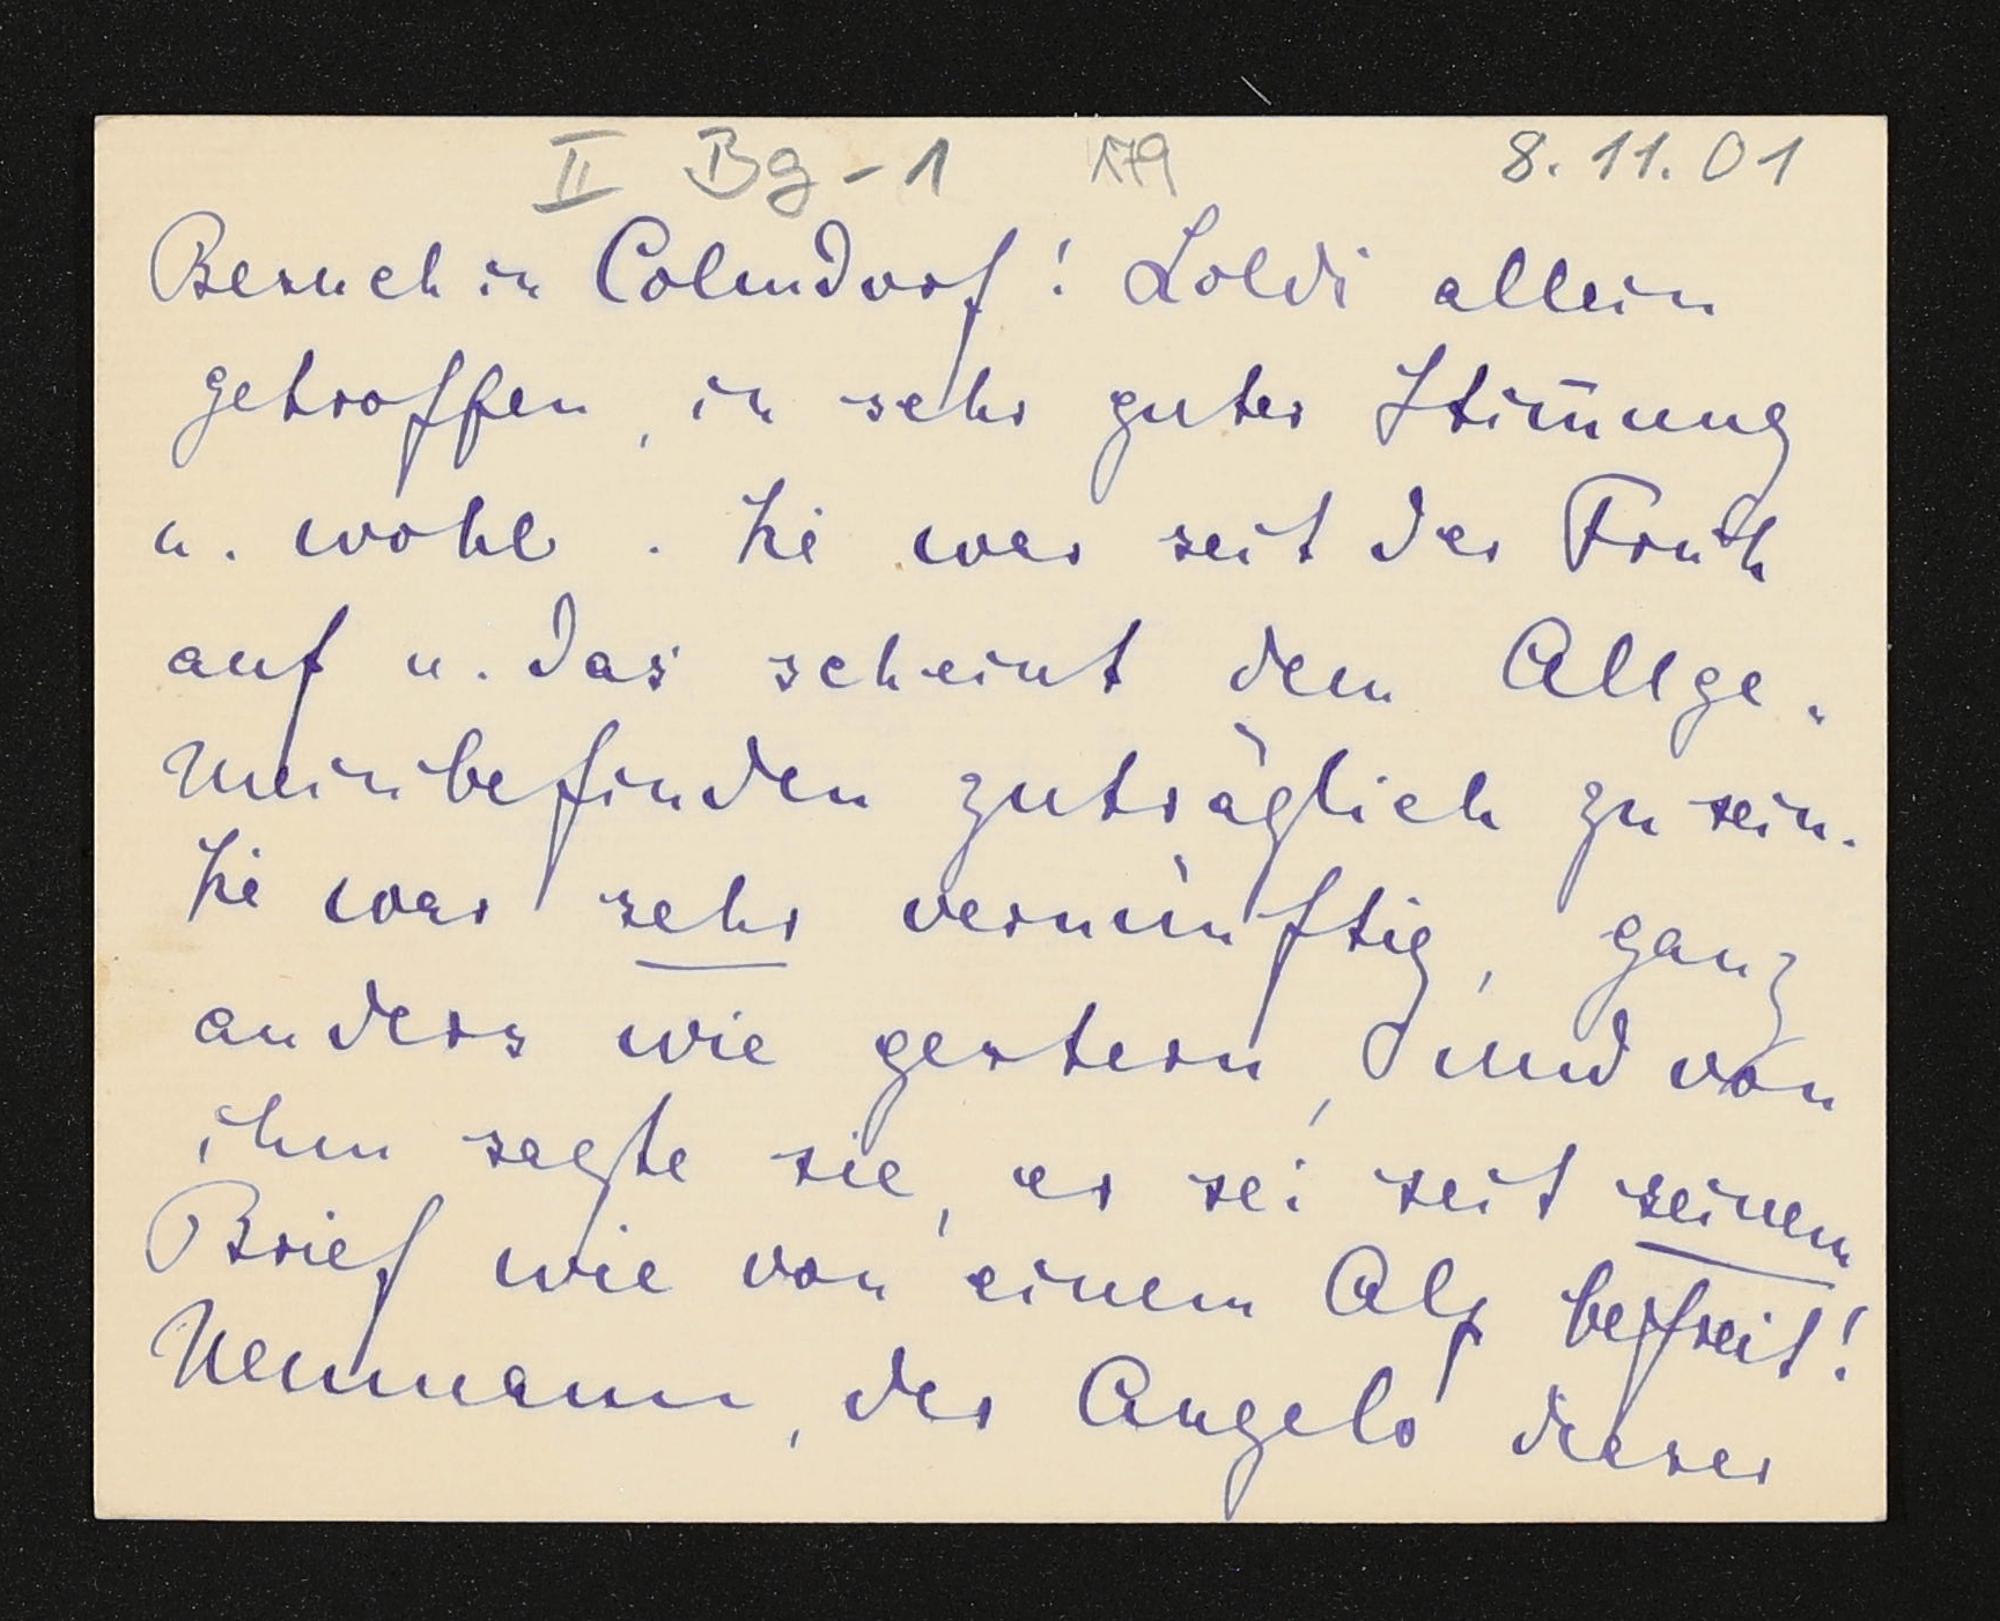 II Bg - 1 179 8.11.01
Besuch in Colmdorf! Loldi allein
getroffen, in sehr guter Stim̄ung
u. wohl. Sie war seit der Früh
auf u. das scheint dem Allge-
meinbefinden zuträglich zu sein.
Sie war sehr vernünftig, ganz
anders wie gestern, und von
ihm sagte sie, er sei seit seinem
Brief wie von einem Alp befreit!
Neumann, der Angelo dieser